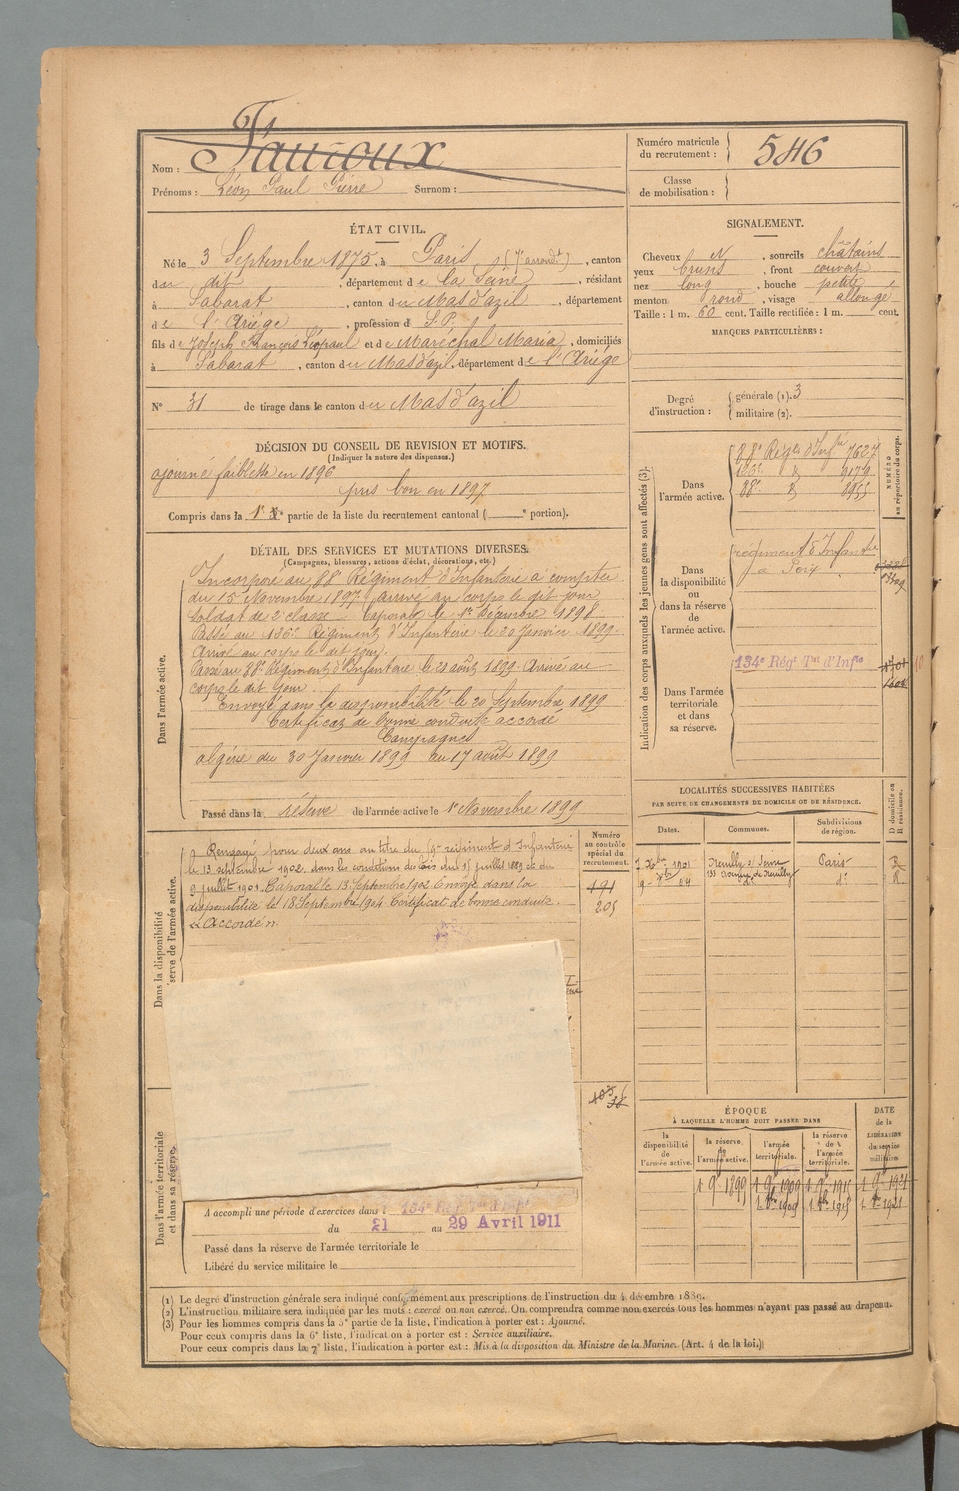 Nom : Fauroux
Prénoms : Léon Paul Pierre Surnom :
Numéro matricule du recrutement : 546
Classe de mobilisation :
ÉTAT CIVIL.
Né le 3 Septembre 1875, à Paris (7e arrondt), canton
du dit, département de la Seine, résidant
à Sabarat, canton du Mas d'azil, département
de l'Ariége, profession d S.P.
fils de Joseph François Léopaul et de Maréchal Maria, domiciliés
à Sabarat, canton du Mas d'azil, département de l'Ariége
N° 31 de tirage dans le canton du Mas d'azil
SIGNALEMENT.
Cheveux N, sourcils châtains
yeux bruns, front couvert
nez long, bouche petite
menton rond, visage allongé
Taille : 1 m. 60 cent. Taille rectifiée : 1 m. cent.
MARQUES PARTICULIÈRES :
Degré d'instruction : générale (1). 3
militaire (2).
DÉCISION DU CONSEIL DE REVISION ET MOTIFS.
(Indiquer la nature des dispenses.)
ajourné faiblesse en 1896
pris bon en 1897
Compris dans la 1e partie de la liste du recrutement cantonal ( e portion).
DÉTAIL DES SERVICES ET MUTATIONS DIVERSES.
(Campagnes, blessures, actions d'éclat, décorations, etc.)
Dans l'armée active.
Incorporé au 88e Régiment d'Infanterie à compter
du 15 Novembre 1897, arrivé au corps le dit jour
soldat de 2e classe. Caporal le 1er Décembre 1898.
Passé au Régiment d'Infanterie le 20 Janvier 1899.
Arrivé au corps le dit jour.
Passé au 88e Régiment d'Infanterie le 20 août 1899. Arrivé au
corps le dit jour.
Envoyé dans la disponibilité le 20 Septembre 1899
Certificat de bonne conduite accordé
Campagnes
algérie du 30 Janvier 1899 au 17 août 1899
Passé dans la réserve de l'armée active le 1er Novembre 1899
Indication des corps auxquels les jeunes gens sont affectés (3).
NUMÉRO au répertoire du corps.
Dans l'armée active.
88e Régt d'Infie 7627
88e 8955
Dans la disponibilité ou dans la réserve de l'armée active.
régiment d'Infanterie
Dans l'armée territoriale et dans sa réserve.
134e Régt Tal d'Infie
LOCALITÉS SUCCESSIVES HABITÉES
PAR SUITE DE CHANGEMENTS DE DOMICILE OU DE RÉSIDENCE.
Dates. Communes. Subdivisions de région. D domicile ou R résidence.
1901 Neuilly s/ Seine Paris R
9 04 d° d° R
Dans la disponibilité
serve de l'armée active.
Numéro au contrôle spécial du recrutement.
a Rengagé pour deux ans au titre du régiment d'Infanterie
le 13 septembre 1902, dans les conditions des lois du 15 juillet 1889 et du
9 juillet 1901. Caporal le 13 Septembre 1902. Envoyé dans la
disponibilité le 18 Septembre 1904. Certificat de bonne conduite
Accordé
191
205
ÉPOQUE
À LAQUELLE L'HOMME DOIT PASSER DANS
la disponibilité de l'armée active.
la réserve de l'armée active.
l'armée territoriale.
la réserve de l'armée territoriale.
DATE de la LIBÉRATION du service militaire.
Dans l'armée territoriale et dans sa réserve.
A accompli une période d'exercices dans l 134e Régt Tal d'Infie
du 21 au 29 Avril 1911
Passé dans la réserve de l'armée territoriale le
Libéré du service militaire le
(1) Le degré d'instruction générale sera indiqué conformément aux prescriptions de l'instruction du 4 décembre 1889.
(2) L'instruction militaire sera indiquée par les mots : exercé ou non exercé. On comprendra comme non exercés tous les hommes n'ayant pas passé au drapeau.
(3) Pour les hommes compris dans la 5e partie de la liste, l'indication à porter est : Ajourné.
Pour ceux compris dans la 6e liste, l'indication à porter est : Service auxiliaire.
Pour ceux compris dans la 7e liste, l'indication à porter est : Mis à la disposition du Ministre de la Marine. (Art. 4 de la loi.)